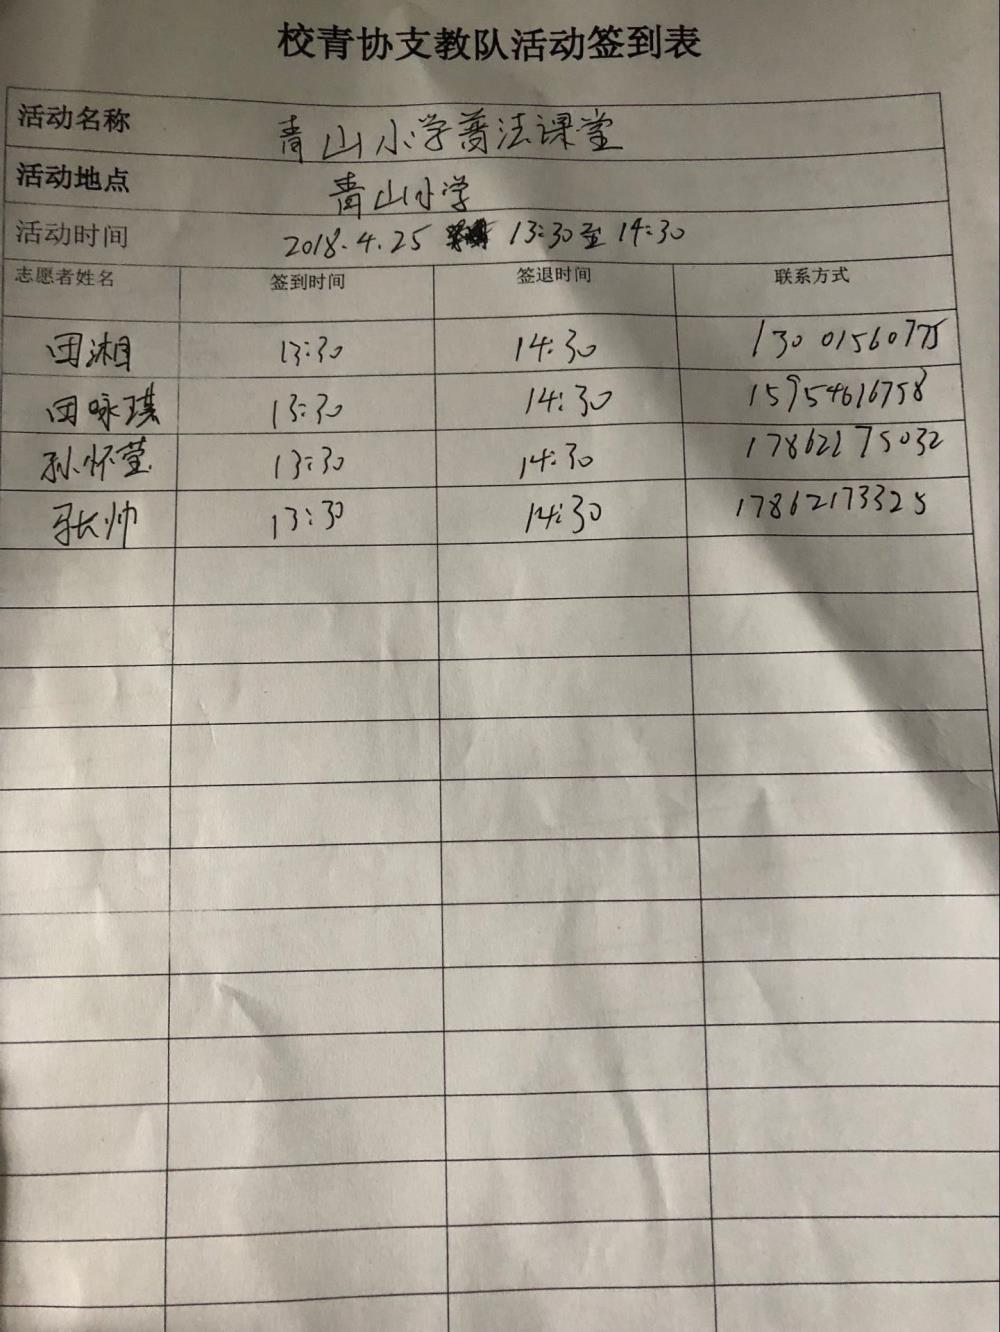 校青协支教队活动签到表
活动名称 青山小学普法课堂
活动地点 青山小学
活动时间 2018.4.25 13:30至14:30
志愿者姓名 签到时间 签退时间 联系方式
田湘 13:30 14:30 13001560775
田咏琪 13:30 14:30 15954616758
孙怀莹 13:30 14:30 17862175032
张帅 13:30 14:30 17862173325